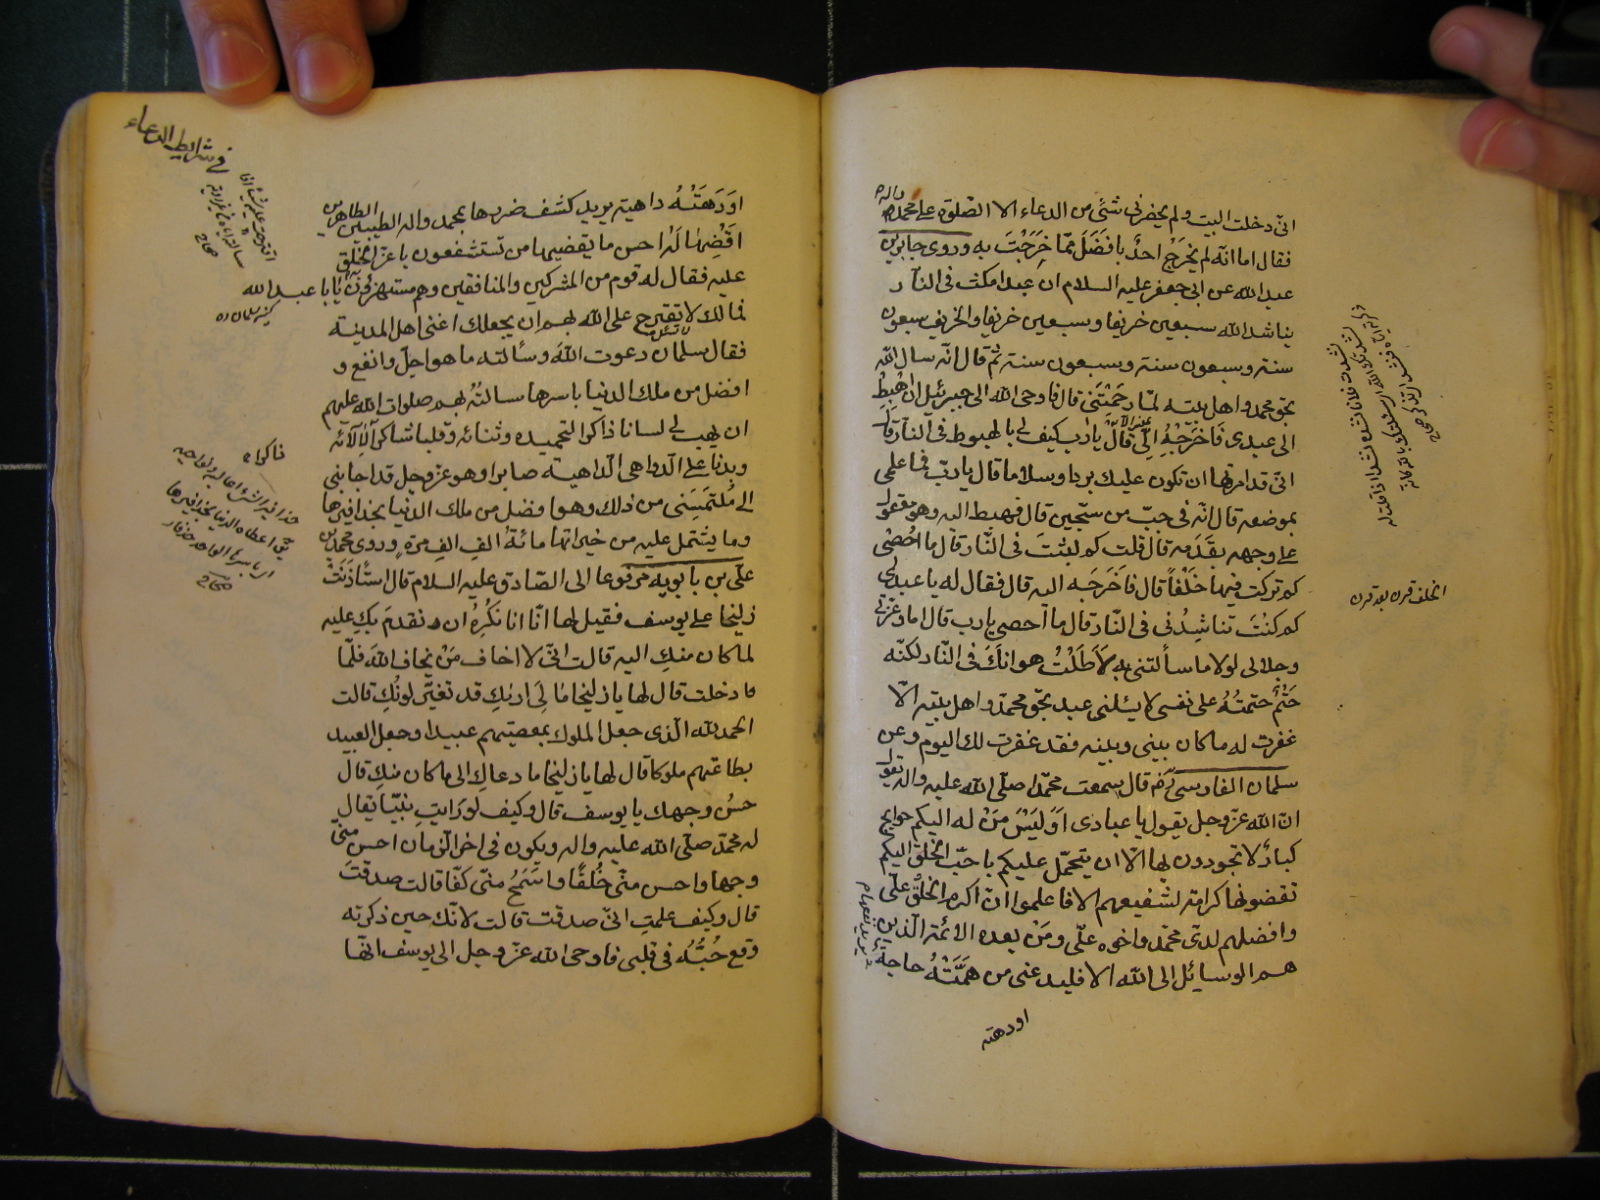 انّى دخلت البيت ولم يحضرنى شئ من الدعاء الا الصّلوة على محمد واله
فقال اما انّه لم يخرج احد بافضل ممّا خرجت به وروى جابر بن
عبد الله عن ابى جعفر عليه السلام ان عبدا مكث فى النّار
يناشد الله سبعين خريفا وسبعين خريفا والخريف سبعون
سنة وسبعون سنة وسبعون سنة ثمّ قال انّه سال الله
بحق محمد واهل بيته لمّا رحمتنى قال فاوحى الله الى جبرئيل ان اهبط
الى عبدى فاخرجه الىّ قال يارب كيف لى بالهبوط فى النّار قال
انّى قد امرتها ان تكون عليك بردا وسلاما قال يارب فما علمى
بموضعه قال انّه فى جبّ من سجّين قال فهبط اليه وهو معقول
على وجهه بقدمه قال قلت كم لبثت فى النّار قال ما احصى
كم تركت فيها خلفا قال فاخرجه اليه قال فقال له يا عبدى
كم كنت تناشدنى فى النّار قال ما احصى يارب قال اما وعزّتى
وجلالى لولا ما سألتنى به لاطلت هوانك فى النّار لكنّه
حتم حتمته على نفسى لا يسئلنى عبد بحق محمد واهل بيته الّا
غفرت له ما كان بينى وبينه فقد غفرت لك اليوم وعن
سلمان الفارسى قال سمعت محمّدا صلّى الله عليه واله يقول
انّ الله عزّ وجل يقول يا عبادى اوليس من له اليكم حوايج
كبار لا تجودون بها الّا ان يتحمّل عليكم باحبّ الخلق اليكم
تقضونها كرامة لشفيعهم الا فاعلموا انّ اكرم الخلق علىّ
وافضلهم لدىّ محمّد واخوه علىّ ومن بعده الائمّة الّذين
هم الوسائل الى الله الا فليدعنى من همّته حاجة
او دهته
الخلف قرن بعد قرن
فى شرايط الدعاء
او دهته داهية يريد كشف ضررها بمحمد واله الطيبين الطاهرين
اقضها له احسن ما يقضيها من تستشفعون باعزّ الخلق
عليه فقال له قوم من المشركين والمنافقين وهم مستهزؤن يابا عبد الله
فمالك لا تقترح على الله بهم ان يجعلك اغنى اهل المدينة
فقال سلمان دعوت الله وسألته ما هو اجلّ وانفع و
افضل من ملك الدنيا باسرها سألته بهم صلوات الله عليهم
ان يهب لى لسانا ذاكرا لتحميده وثنائه وقلبا شاكرا لآلائه
وبدنا على الدواهى الدّاهية صابرا وهو عزّ وجل قد اجابنى
الى ملتمسى من ذلك وهو افضل من ملك الدنيا بحذافيرها
وما يشتمل عليه من خيراتها مائة الف الف مرّة وروى محمد بن
علىّ بن بابويه مرفوعا الى الصّادق عليه السلام قال استأذنت
زليخا على يوسف فقيل لها انّا نكره ان نقدم بك عليه
لما كان منك اليه قالت انّى لا اخاف من يخاف الله فلمّا
دخلت قال لها يا زليخا مالى اريك قد تغيّر لونك قالت
الحمد لله الّذى جعل الملوك بمعصيتهم عبيدا وجعل العبيد
بطاعتهم ملوكا قال لها يا زليخا ما دعاك الى ما كان منك قال
حسن وجهك يا يوسف قال وكيف لو رايت نبيّا يقال
له محمّد صلّى الله عليه واله ويكون فى اخر الزمان احسن منّى
وجها واحسن منّى خلقا واسمح منّى كفّا قالت صدقت
قال وكيف علمت انّى صدقت قالت لانّك حين ذكرته
وقع حبّه فى قلبى فاوحى الله عزّ وجل الى يوسف انّها